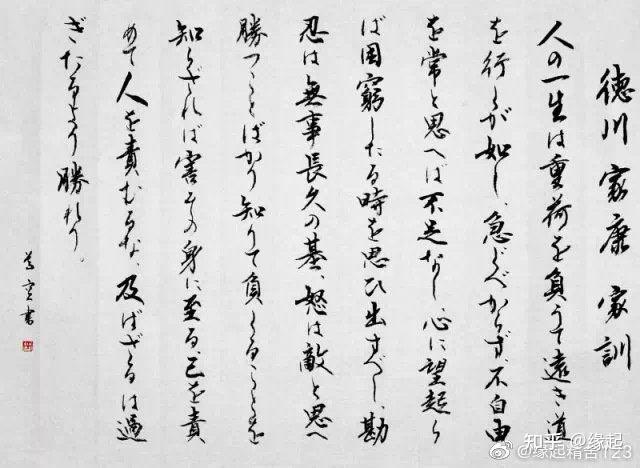 徳川家康家訓
人の一生は重荷を負うて遠き道
を行くが如し、急ぐべからず、不自由
を常と思へば不足なし、心に望起ら
ば困窮したる時を思ひ出すべし、勘
忍は無事長久の基、怒は敵と思へ
勝つことばかり知りて負くることを
知らざれば害その身に至る、己を責
めて人を責むるな、及ばざるは過
ぎたるより勝れり。
書
知乎 @缘起
@缘起精舍123